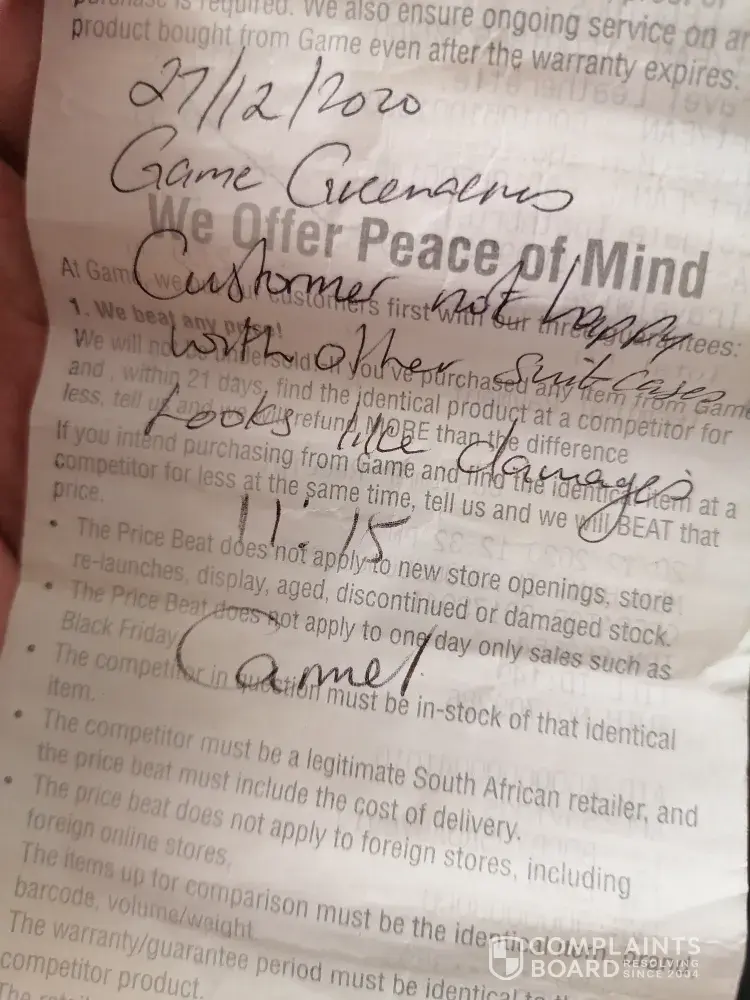 purchase is required. We also ensure ongoing service on
product bought from Game even after the warranty expires.
27/12/2020
Game Greenacres
We Offer Peace of Mind
Customer not happy
At Game, we our customers first with our three guarantees:
1. We beat any price!
with other suitcases
We will not be undersold. If you've purchased any item from Game
and, within 21 days, find the identical product at a competitor for
less, tell us and refund MORE than the difference
Looks like damages
If you intend purchasing from Game and find the identical item at a
competitor for less at the same time, tell us and we will BEAT that
price.
11:15
• The Price Beat does not apply to new store openings, store
re-launches, display, aged, discontinued or damaged stock.
• The Price Beat does not apply to one day only sales such as
Black Friday
Carmel
• The competitor in question must be in-stock of that identical
item.
• The competitor must be a legitimate South African retailer, and
the price beat must include the cost of delivery.
• The price beat does not apply to foreign stores, including
foreign online stores,
The items up for comparison must be the identical
barcode, volume/weight
The warranty/guarantee period must be identical to
competitor product.
COMPLAINTS
BOARD RESOLVING
SINCE 2004